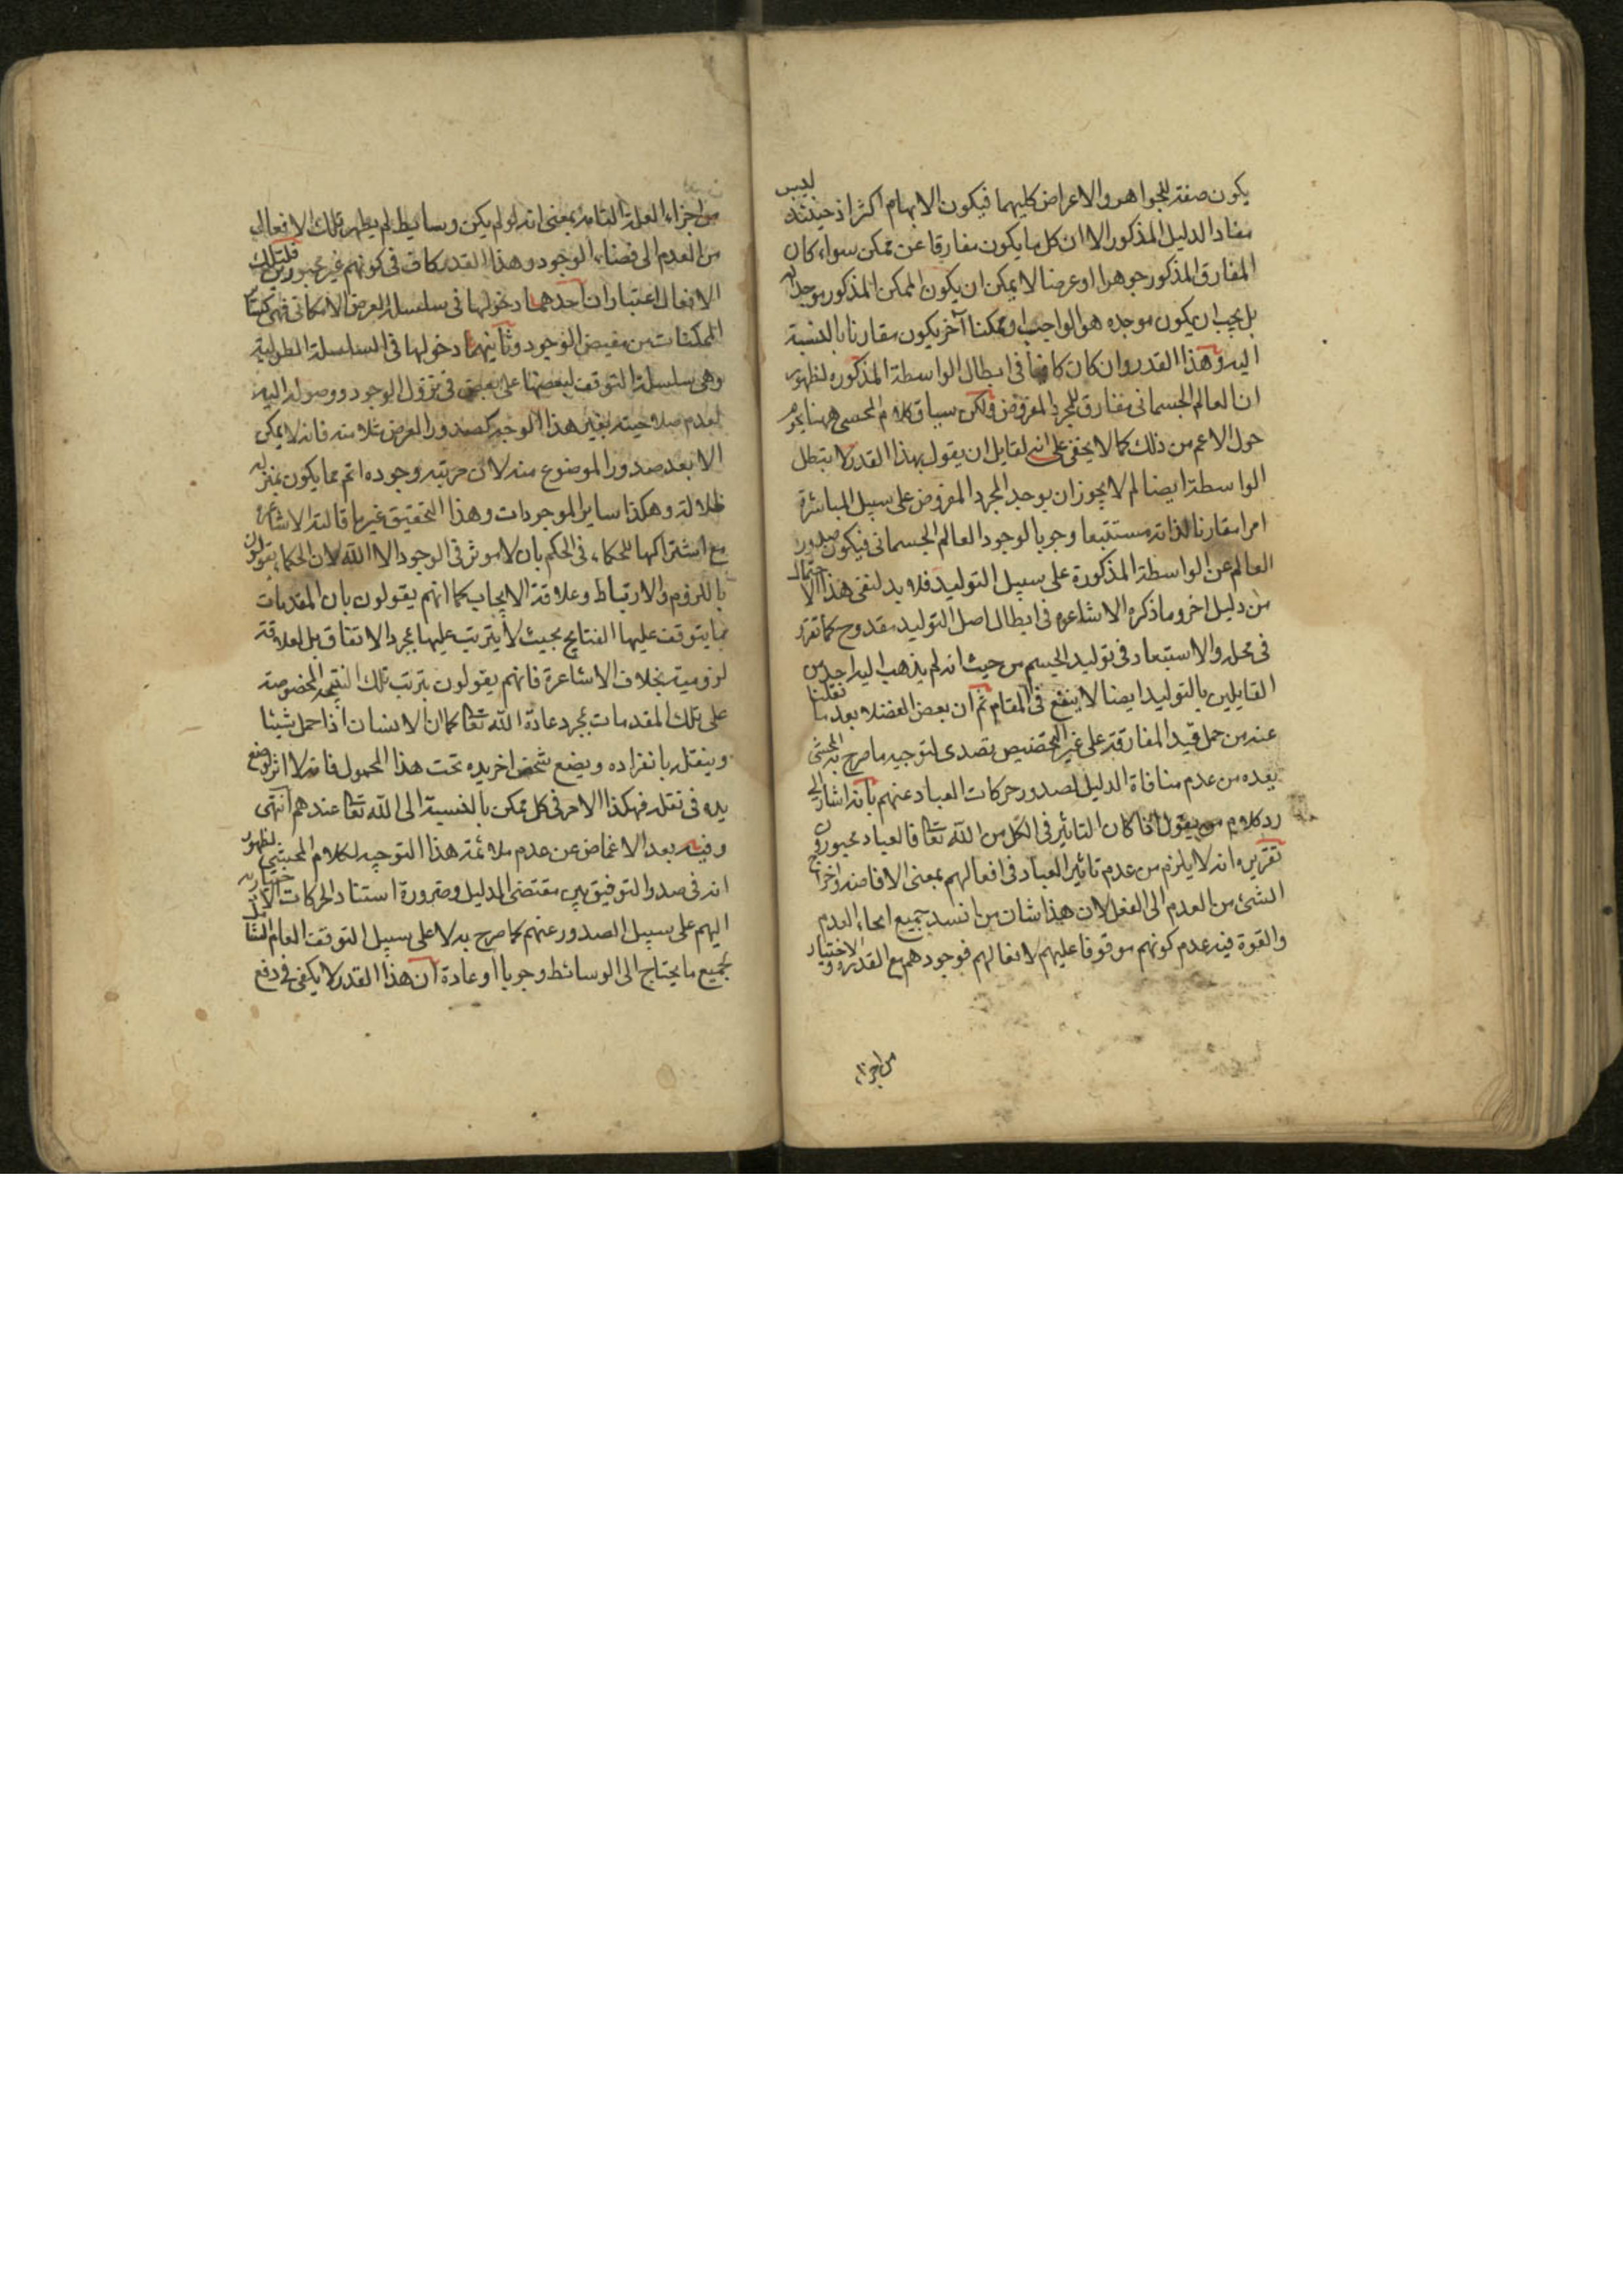 يكون صفة للجواهر والاعراض كليهما فيكون الابهام اكثر اذ حينئذ ليس
مفاد الدليل المذكور الا ان كل ما يكون مفارقا عن ممكن سواء كان
المفارق المذكور جوهرا او عرضا لا يمكن ان يكون الممكن المذكور موجدا له
بل يجب ان يكون موجده هو الواجب او ممكنا آخر يكون مقارنا بالنسبة
اليه وهذا القدر وان كان كافيا فى ابطال الواسطة المذكورة لظهور
ان العالم الجسمانى مفارق للمجرد المفروض ولكن سياق كلام المحشى ههنا يحوم
حول الاعم من ذلك كما لا يخفى على انه لقايل ان يقول بهذا القدر لا يبطل
الواسطة ايضا لم لا يجوز ان يوجد المجرد المفروض على سبيل المباشرة
امرا مقارنا لذاته مستتبعا وجوبا لوجود العالم الجسمانى فيكون صدور
العالم عن الواسطة المذكورة على سبيل التوليد فلا بد لنفى هذا الاحتمال
من دليل اخر وما ذكره الاشاعره فى ابطال اصل التوليد مقدوح كما تقرر
فى محله والاستبعاد فى توليد الجسم من حيث انه لم يذهب اليه احد من
القايلين بالتوليد ايضا لا ينفع فى المقام ثم ان بعض الفضلاء بعد ما نقلنا
عنه من حمل قيد المفارقة على غير التخصيص تصدى لتوجيه ما صرح به المحشى
بعده من عدم منافاة الدليل لصدور حركات العباد عنهم بانه اشار الى
رد كلام من يقول اذا كان التاثير فى الكل من الله تعالى فالعباد مجبورون
تقريره انه لا يلزم من عدم تاثير العباد فى افعالهم بمعنى الافاضة واخراج
الشئ من العدم الى الفعل لان هذا شان من انسد جميع انحاء العدم
والقوة فيه عدم كونهم موقوفا عليهم لافعالهم فوجودهم مع القدرة والاختيار
من اجزاء
من اجزاء العلة التامة بمعنى انه لو لم يكن وسايط لم يظهر تلك الافعال
من العدم الى فضاء الوجود وهذا القدر كاف فى كونهم غير مجبورين فلتلك
الافعال اعتباران احدهما دخولها فى سلسلة العرض الامكانى فهى كسائر
الممكنات من مفيض الوجود وثانيهما دخولها فى السلسلة الطولية
وهى سلسلة التوقف لبعضها على بعض فى نزول الوجود ووصوله اليه
لعدم صلاحيته بغير هذا الوجه كصدور العرض مثلا منه فانه لا يمكن
الا بعد صدور الموضوع منه لان مرتبه وجوده اتم مما يكون بمنزلة
ظلاله وهكذا ساير الموجودات وهذا التحقيق غير ما قالته الاشاعرة
مع اشتراكها للحكماء فى الحكم بان لا موثر فى الوجود الا الله لان الحكماء يقولون
باللزوم والارتباط وعلاقة الايجاب كما انهم يقولون بان المقدمات
مما يتوقف عليها النتايج بحيث لا يترتب عليها بمجرد الاتفاق بل لعلاقة
لزومية بخلاف الاشاعرة فانهم يقولون بترتب تلك النتيجه المخصوصة
على تلك المقدمات بمجرد عادة الله تعالى كما ان الانسان اذا حمل شيئا
وينقله بانفراده ويضع شخص اخر يده تحت هذا المحمول فانه لا اثر لوضع
يده فى نقله فهكذا الامر فى كل ممكن بالنسبة الى الله تعالى عندهم انتهى
وفيه بعد الاغماض عن عدم ملائمة هذا التوجيه لكلام المحشى لظهور
انه فى صدد التوفيق بين مقتضى الدليل وضرورة استناد الحركات الاختيارية
اليهم على سبيل الصدور عنهم كما صرح به لا على سبيل التوقف العام الشامل
لجميع ما يحتاج الى الوسائط وجوبا او عادة ان هذا القدر لا يكفى فى دفع